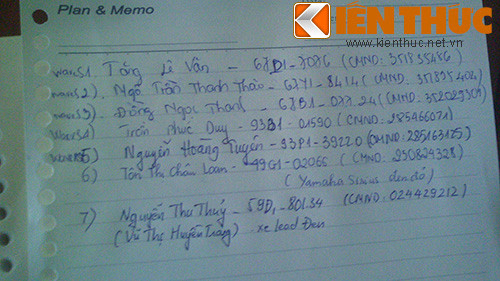 Plan & Memo
KIẾN THỨC
www.kienthuc.net.vn
1. Tăng Lê Vân - 67D1-7076 (CMND: 351835486)
2). Ngô Trần Thanh Thảo - 67Y1-8414 (CMND: 351895404)
3). Đồng Ngọc Thanh - 67B1-077.24 (CMND:
Trần Phúc Duy - 93B1-01590 (CMND: 285466071)
5) Nguyễn Hoàng Tuyên - 93P1-39220 (CMND: 285163185)
6) Tôn Thị Châu Loan - 49G1-02066 (CMND: 250824328)
(Yamaha Sirius đen đỏ)
7) Nguyễn Thu Thuỷ - 59D1-801.34 (CMND: 024429212)
(Vũ Thị Huyền Trang) xe lead Đen